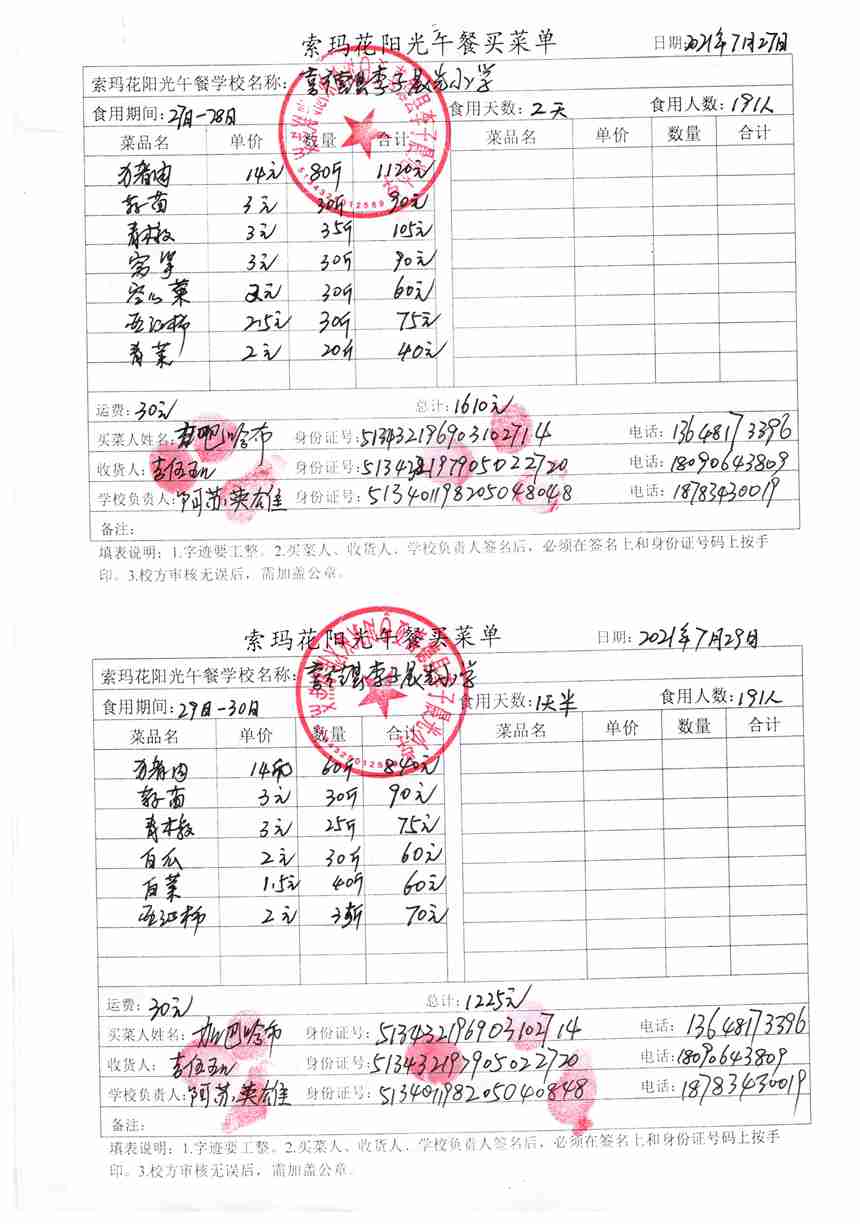 索玛花阳光午餐买菜单 日期:2021年7月27日
索玛花阳光午餐学校名称: 喜德县李子乡 小学
食用期间: 27日-28日 食用天数: 2天 食用人数: 191人
菜品名 单价 数量 合计 菜品名 单价 数量 合计
猪肉 14元 80斤 1120元
3元 30斤 90元
3元 35斤 105元
3元 30斤 90元
空心菜 2元 30斤 60元
西红柿 2.5元 30斤 75元
青菜 2元 20斤 40元
运费: 30元 总计: 1610元
买菜人姓名: 吧哈布 身份证号: 513432196903102714 电话: 13648173396
收货人: 吉伍 身份证号: 513432197905022720 电话: 18090643809
学校负责人: 阿苏英雄 身份证号: 513401198205048048 电话: 18783430019
备注:
填表说明: 1.字迹要工整。2.买菜人、收货人、学校负责人签名后，必须在签名上和身份证号码上按手
印。3.校方审核无误后，需加盖公章。
索玛花阳光午餐买菜单 日期: 2021年7月29日
索玛花阳光午餐学校名称: 喜德县李子 小学
食用期间: 29日-30日 食用天数: 1天半 食用人数: 191人
菜品名 单价 数量 合计 菜品名 单价 数量 合计
猪肉 14元 60斤 840元
3元 30斤 90元
3元 25斤 75元
白瓜 2元 30斤 60元
白菜 1.5元 40斤 60元
西红柿 2元 35斤 70元
运费: 30元 总计: 1225元
买菜人姓名: 加巴哈布 身份证号: 513432196903102714 电话: 13648173396
收货人: 吉伍 身份证号: 513432197905022720 电话: 18090643809
学校负责人: 阿苏英雄 身份证号: 513401198205040848 电话: 18783430019
备注:
填表说明: 1.字迹要工整。2.买菜人、收货人、学校负责人签名后，必须在签名上和身份证号码上按手
印。3.校方审核无误后，需加盖公章。